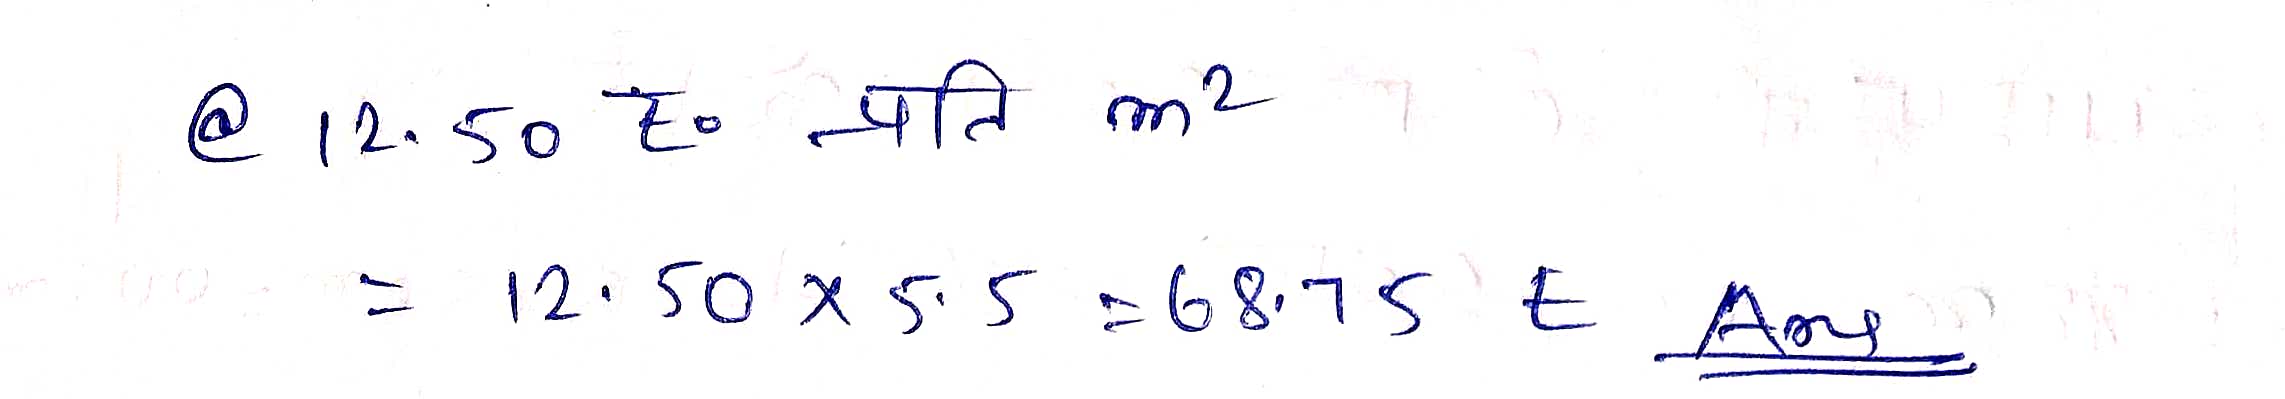 @ 12.50 रु० प्रति m²
= 12.50 x 5.5 = 68.75 रु Ans